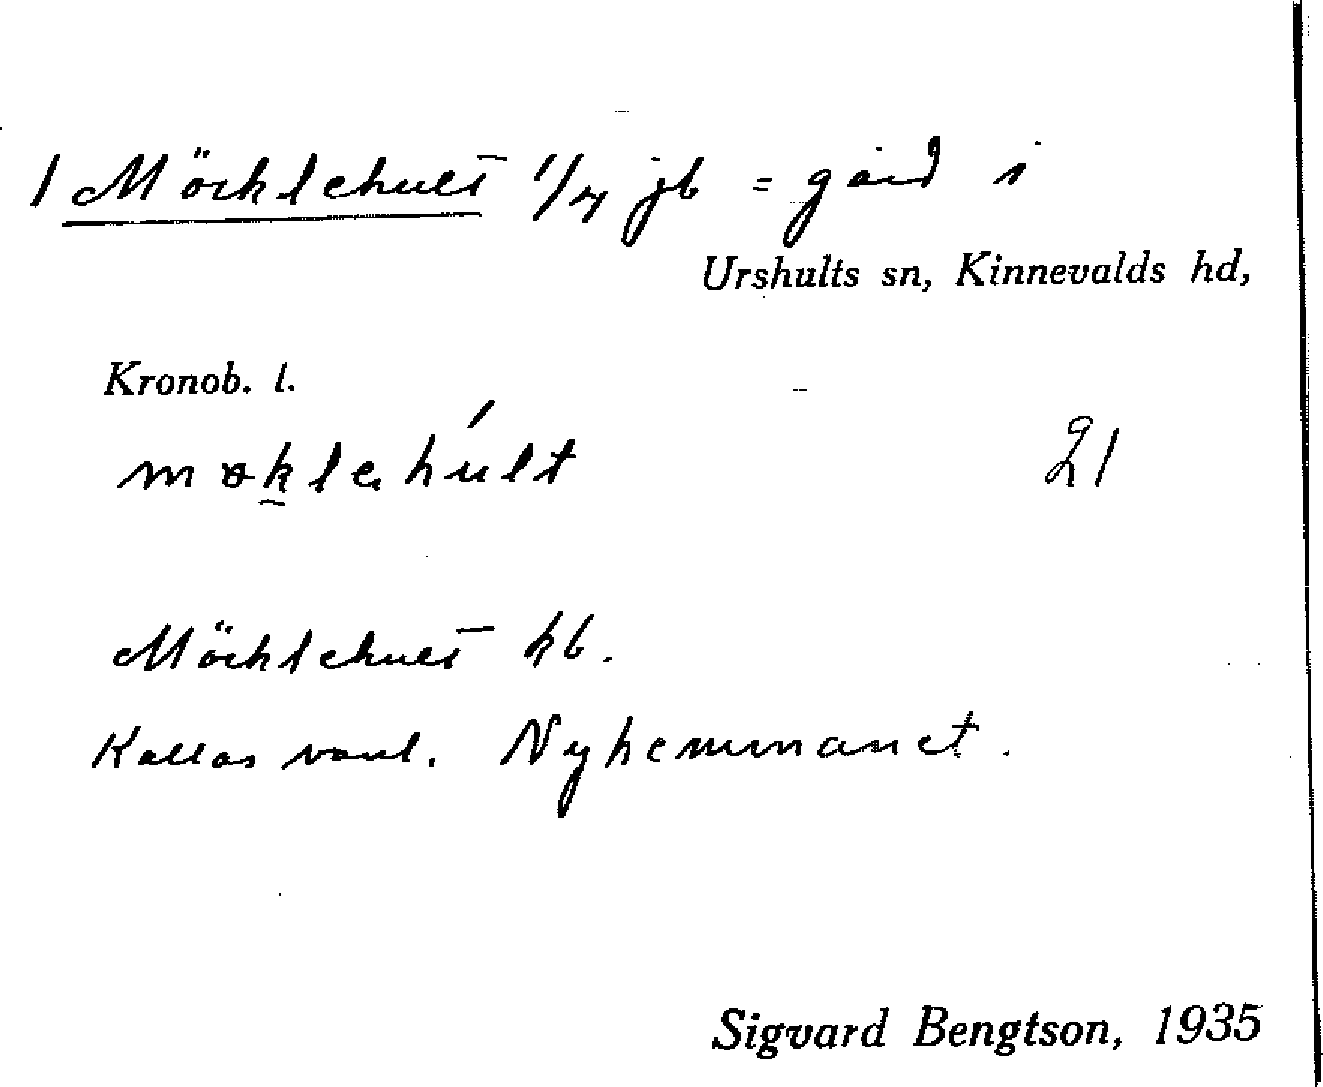 1 Möcklehult 1/4 jb = gård i
Urshults sn, Kinnevalds hd,
Kronob. l.
møklehúlt 21
Möcklehult kb.
Kallas vanl. Nyhemmanet.
Sigvard Bengtson, 1935